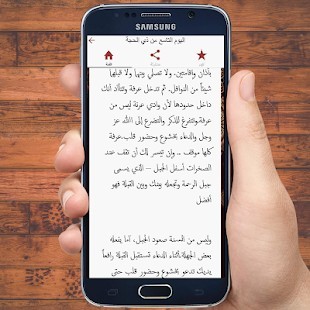 SAMSUNG
اليوم التاسع من ذي الحجة
بأذان وإقامتين. ولا تصلي بينها ولا قبلها
شيئاً من النوافل. ثم تدخل عرفة وتتأكد أنك
داخل حدودها لأن وادي عرنة ليس من
عرفة.وتتفرغ للذكر والتضرع إلى الله عز
وجل والدعاء بخشوع وحضور قلب.عرفة
كلها موقف .. وإن تيسر لك أن تقف عند
الصخرات أسفل الجبل – الذي يسمى
جبل الرحمة وتجعله بينك وبين القبلة فهو
أفضل
وليس من السنة صعود الجبل، كما يفعله
بعض الجهلة.أثناء الدعاء تستقبل القبلة رافعاً
يديك تدعو بخشوع وحضور قلب حتى